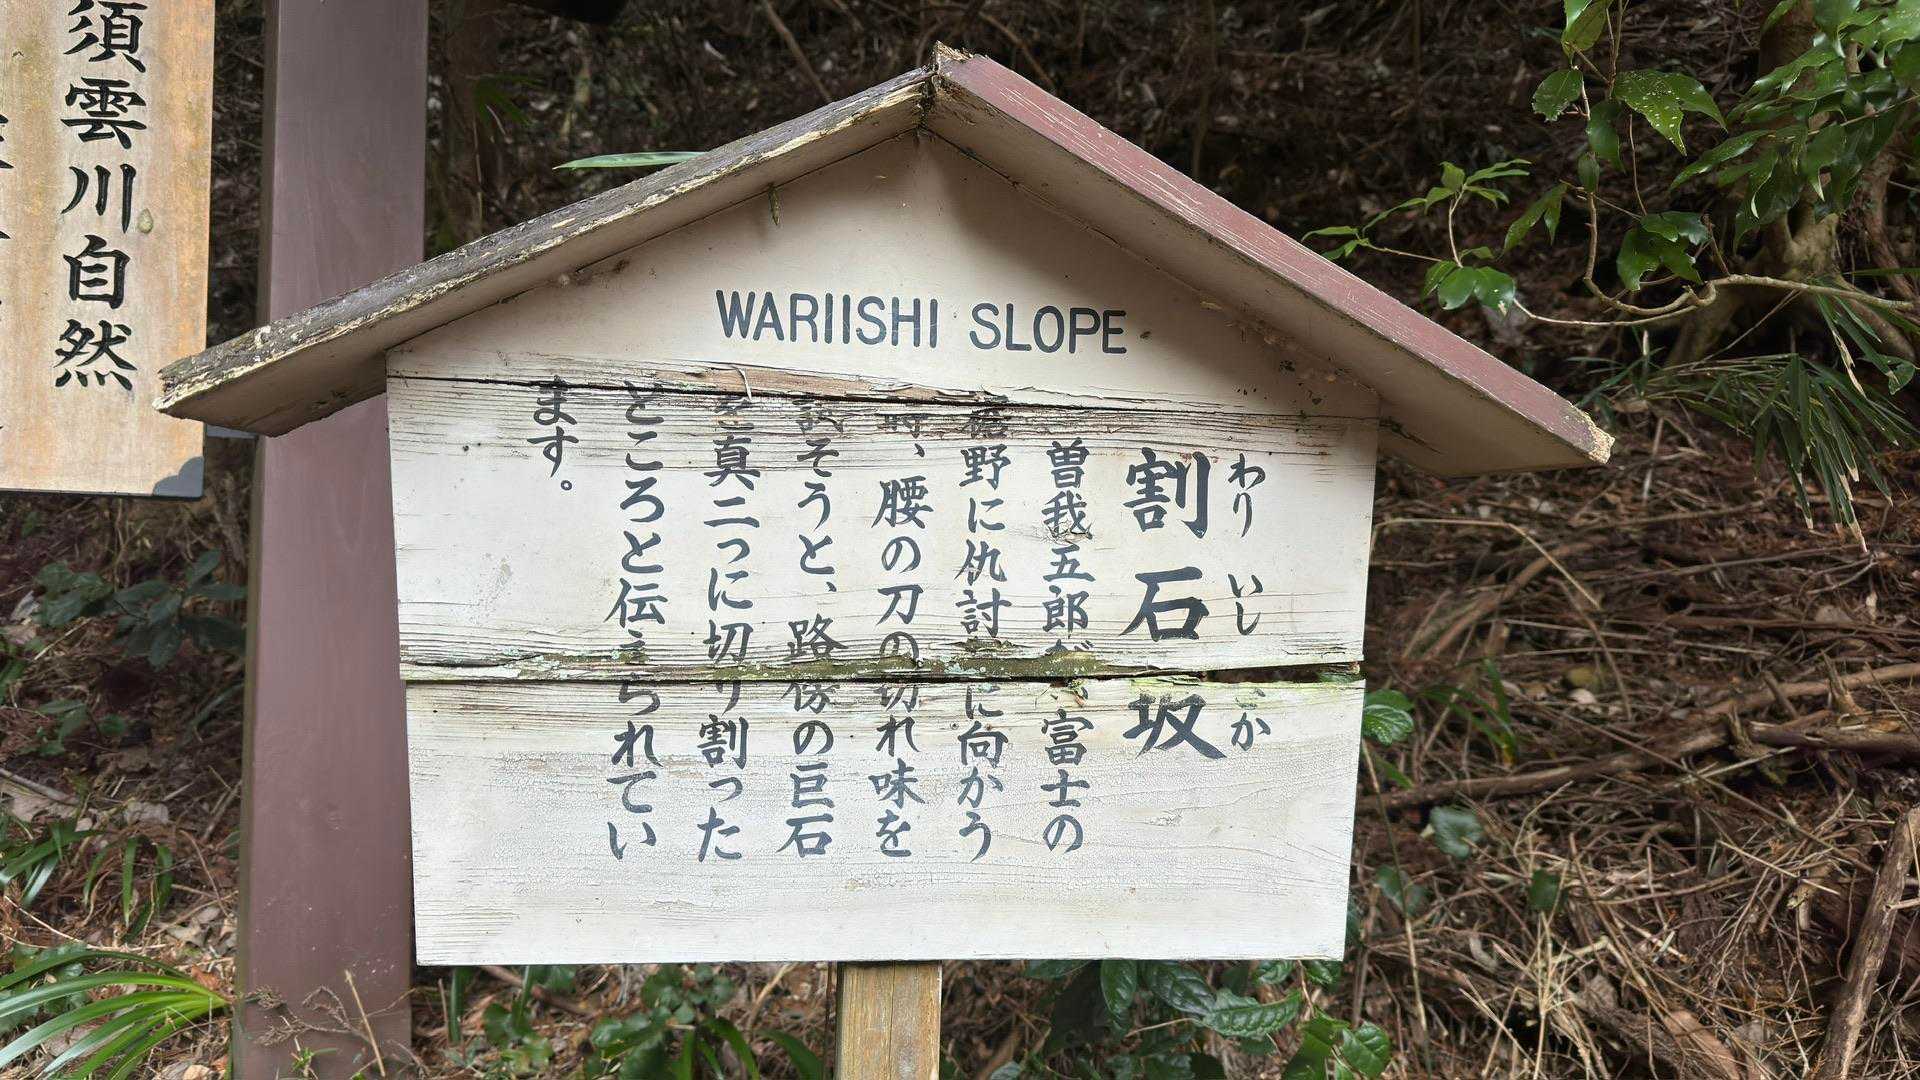 WARIISHI SLOPE
わり いし か
割石坂
曽我五郎が、富士の
野に仇討に向かう
時、腰の刀の切れ味を
試そうと、路傍の巨石
を真二つに切り割った
ところと伝えられてい
ます。
須雲川自然